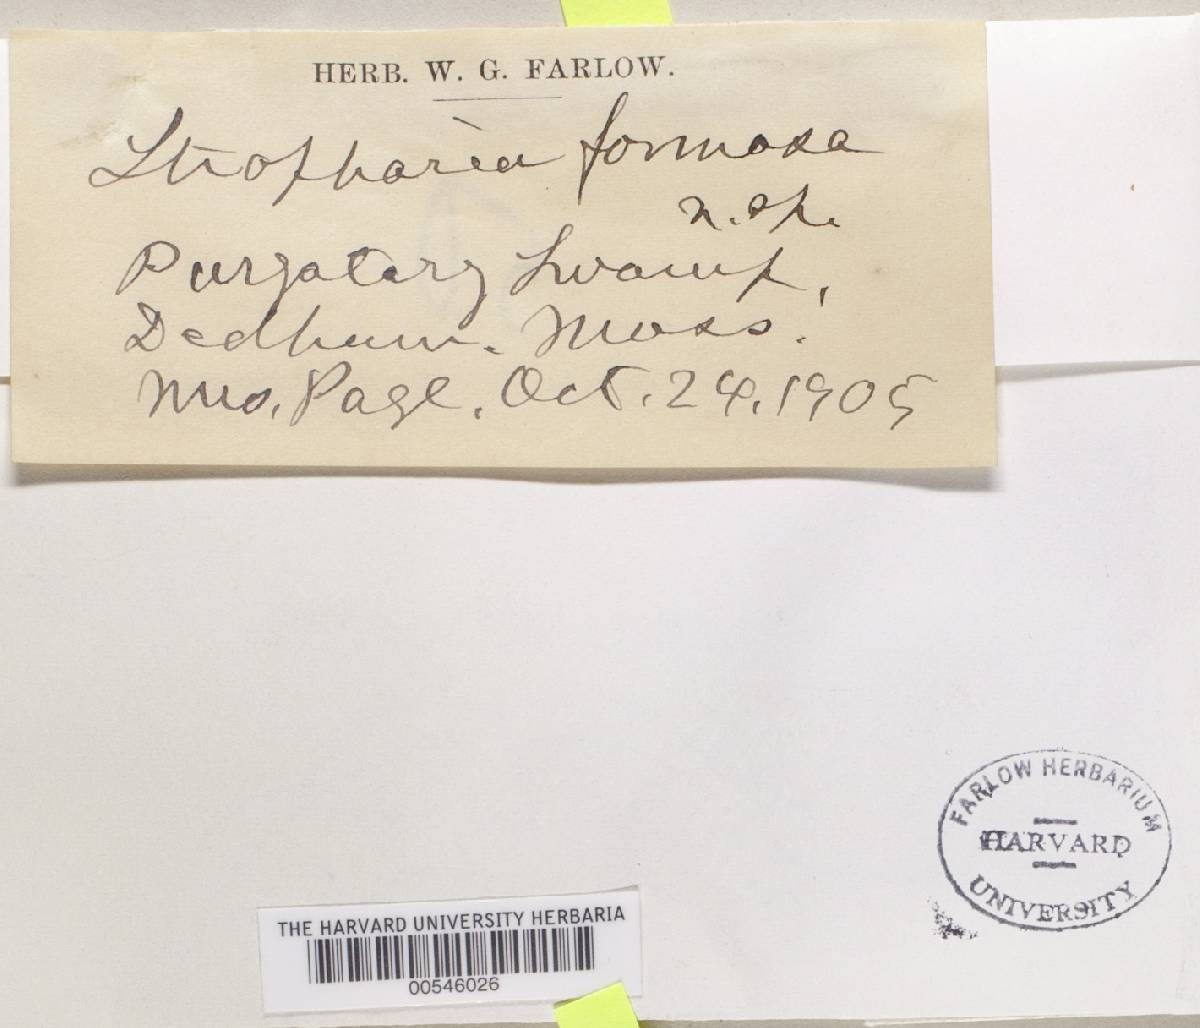 HERB. W. G. FARLOW.
Stropharia formosa
n. sp.
Purgatory Swamp,
Dedham. Mass.
Mrs. Page. Oct. 24. 1905
FARLOW HERBARIUM
HARVARD
UNIVERSITY
THE HARVARD UNIVERSITY HERBARIA
00546026